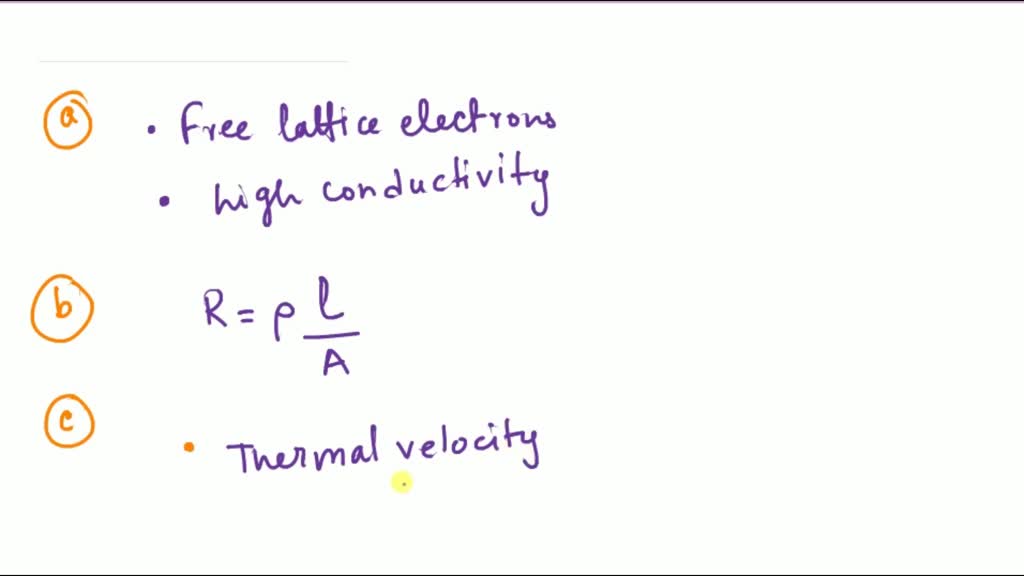 a • Free lattice electrons
• high conductivity
b R = ρ l/A
c
• Thermal velocity